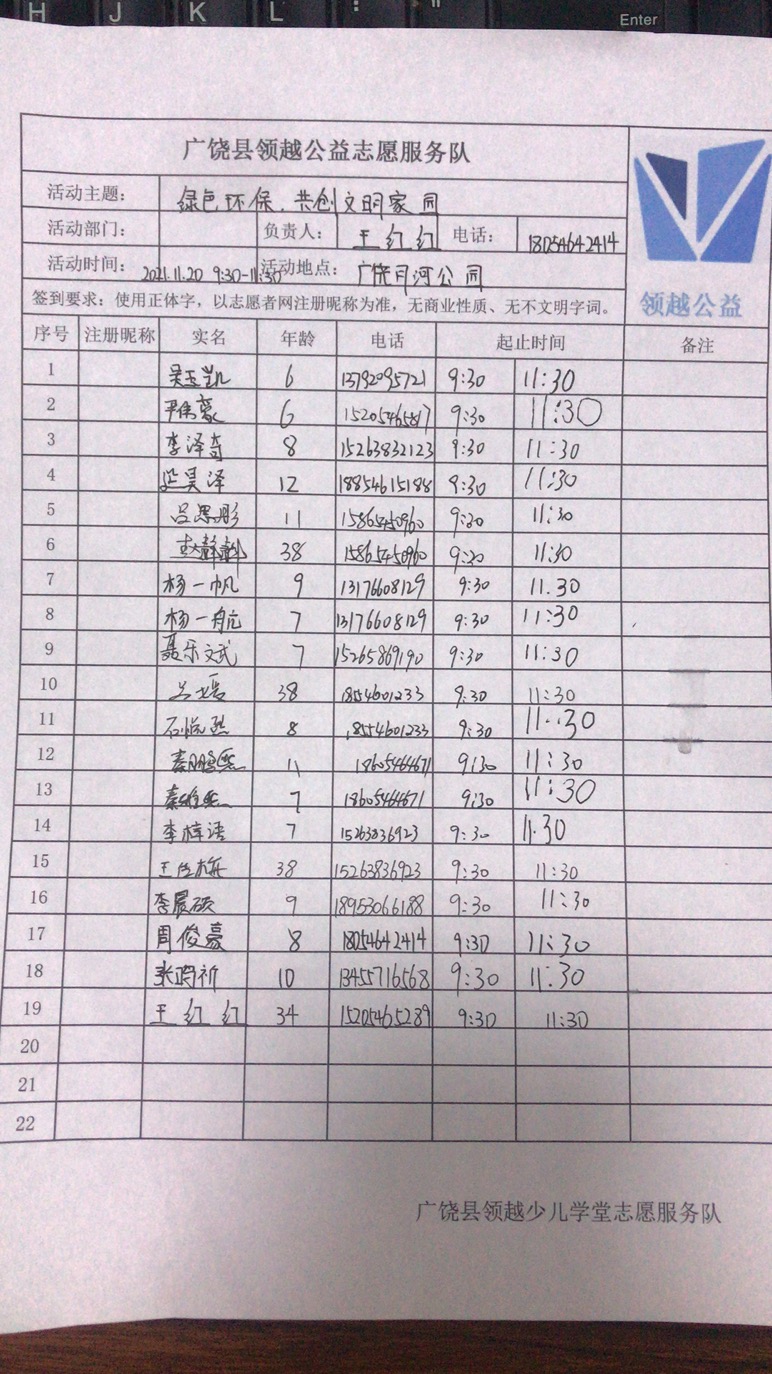 H J K L : " Enter
广饶县领越公益志愿服务队
活动主题： 绿色环保、共创文明家园
活动部门： 负责人： 王红红 电话： 18054642414
活动时间： 2021.11.20 9:30-11:30 活动地点： 广饶月河公园
领越公益
签到要求：使用正体字，以志愿者网注册昵称为准，无商业性质、无不文明字词。
序号 注册昵称 实名 年龄 电话 起止时间 备注
1 吴玉凯 6 13792095721 9:30 11:30
2 6 15205465817 9:30 11:30
3 李泽奇 8 15263832123 9:30 11:30
4 延昊泽 12 18854615188 9:30 11:30
5 吕思彤 11 15865450960 9:30 11:30
6 38 15865450960 9:30 11:30
7 杨一帆 9 13176608129 9:30 11.30
8 杨一航 7 13176608129 9:30 11:30
9 聂乐文武 7 15265869190 9:30 11:30
10 38 18554601233 9:30 11:30
11 8 18554601233 9:30 11:30
12 11 18605464671 9:30 11:30
13 7 18605464671 9:30 11:30
14 李梓语 7 15263836923 9:30 11.30
15 38 15263836923 9:30 11:30
16 李晨硕 9 18953066188 9:30 11:30
17 周俊豪 8 18054642414 9:30 11:30
18 10 13455716568 9:30 11:30
19 王红红 34 15205465289 9:30 11:30
20
21
22
广饶县领越少儿学堂志愿服务队